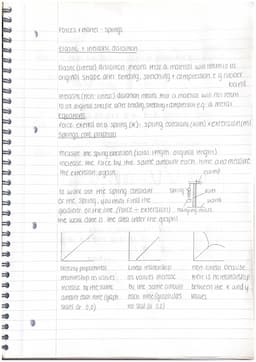 Forces + motion - springs
Elastic + inelastic distortion
Elastic (linear) distortion means that a material will return to its
original shape after bending, stretching + compression e.g. rubber
band
Inelastic (non-linear) distortion means that a material will not return
to its original shape after bending, stretching + compression e.g. a metal
Equations
Force exerted on a spring (N) : spring constant (N/m) × extension (m)
Springs core practical
Measure the spring extension (total length - original length)
Increase the force by the same amount each time and measure
the extension again.
To work out the spring constant
of the spring, you must find the
gradient of the line (force - extension)
The work done is the area under the graph!
spring
ruler
hanging mass
Directly proportional
relationship as values
increase by the same
amount each time (graph
starts at 0,0)
Linear relationship
as values increase
by the same amount
each time (graph does
not start at 0,0)
Non-linear because
there is no relationship
between the x and y
values